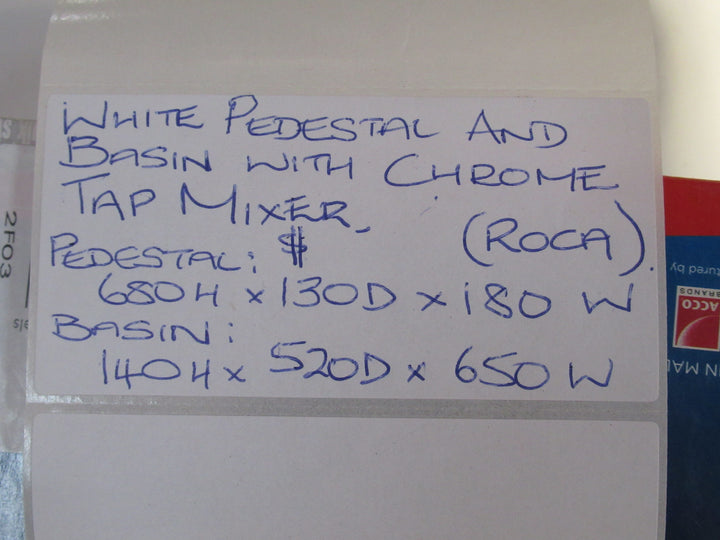 WHITE PEDESTAL AND
BASIN WITH CHROME
TAP MIXER.
(ROCA).
PEDESTAL: $
680H x 130D x 180 W
BASIN:
140H x 520D x 650 W
2F03
tured by
ACCO
BRANDS